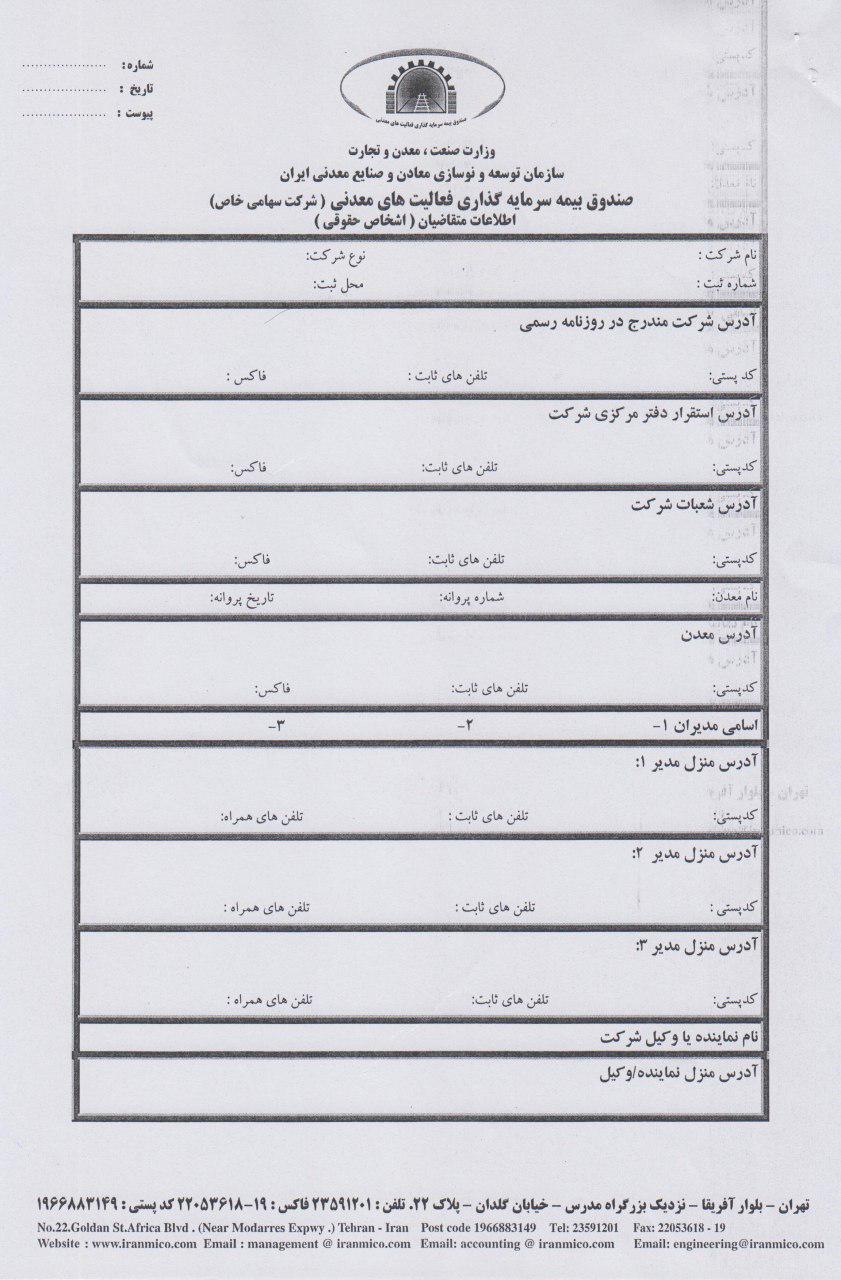 شماره: ....................
تاریخ : ....................
پیوست : ....................
صندوق بیمه سرمایه گذاری فعالیت های معدنی
وزارت صنعت ، معدن و تجارت
سازمان توسعه و نوسازی معادن و صنایع معدنی ایران
صندوق بیمه سرمایه گذاری فعالیت های معدنی ( شرکت سهامی خاص)
اطلاعات متقاضیان ( اشخاص حقوقی )
نام شرکت : نوع شرکت:
شماره ثبت : محل ثبت:
آدرس شرکت مندرج در روزنامه رسمی
کد پستی: تلفن های ثابت : فاکس :
آدرس استقرار دفتر مرکزی شرکت
کدپستی: تلفن های ثابت: فاکس:
آدرس شعبات شرکت
کدپستی: تلفن های ثابت: فاکس:
نام معدن: شماره پروانه: تاریخ پروانه:
آدرس معدن
کدپستی: تلفن های ثابت: فاکس:
اسامی مدیران ۱- ۲- ۳-
آدرس منزل مدیر ۱:
کدپستی: تلفن های ثابت : تلفن های همراه:
آدرس منزل مدیر ۲:
کدپستی : تلفن های ثابت : تلفن های همراه :
آدرس منزل مدیر ۳:
کدپستی: تلفن های ثابت: تلفن های همراه :
نام نماینده یا وکیل شرکت
آدرس منزل نماینده/وکیل
تهران - بلوار آفریقا - نزدیک بزرگراه مدرس - خیابان گلدان - پلاک ۲۲. تلفن : ۲۳۵۹۱۲۰۱ فاکس : ۱۹-۲۲۰۵۳۶۱۸ کد پستی : ۱۹۶۶۸۸۳۱۴۹
No.22.Goldan St.Africa Blvd . (Near Modarres Expwy .) Tehran - Iran Post code 1966883149 Tel: 23591201 Fax: 22053618 - 19
Website : www.iranmico.com Email : management @ iranmico.com Email: accounting @ iranmico.com Email: engineering@iranmico.com